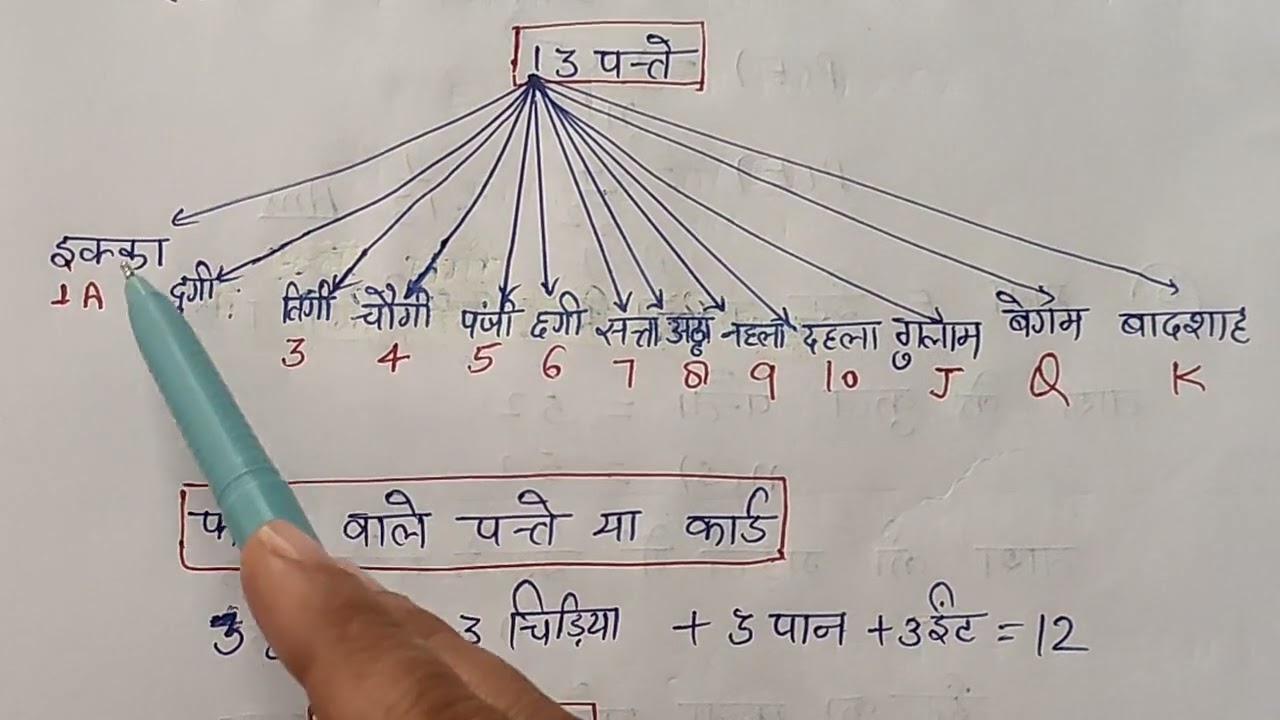 13 पत्ते
इक्का दुग्गी तिगी चौगी पंजी छगी सत्ता अठ्ठा नहला दहला गुलाम बेगम बादशाह
1A 3 4 5 6 7 8 9 10 J Q K
वाले पत्ते या कार्ड
3 3 चिड़िया + 3 पान + 3 ईंट = 12